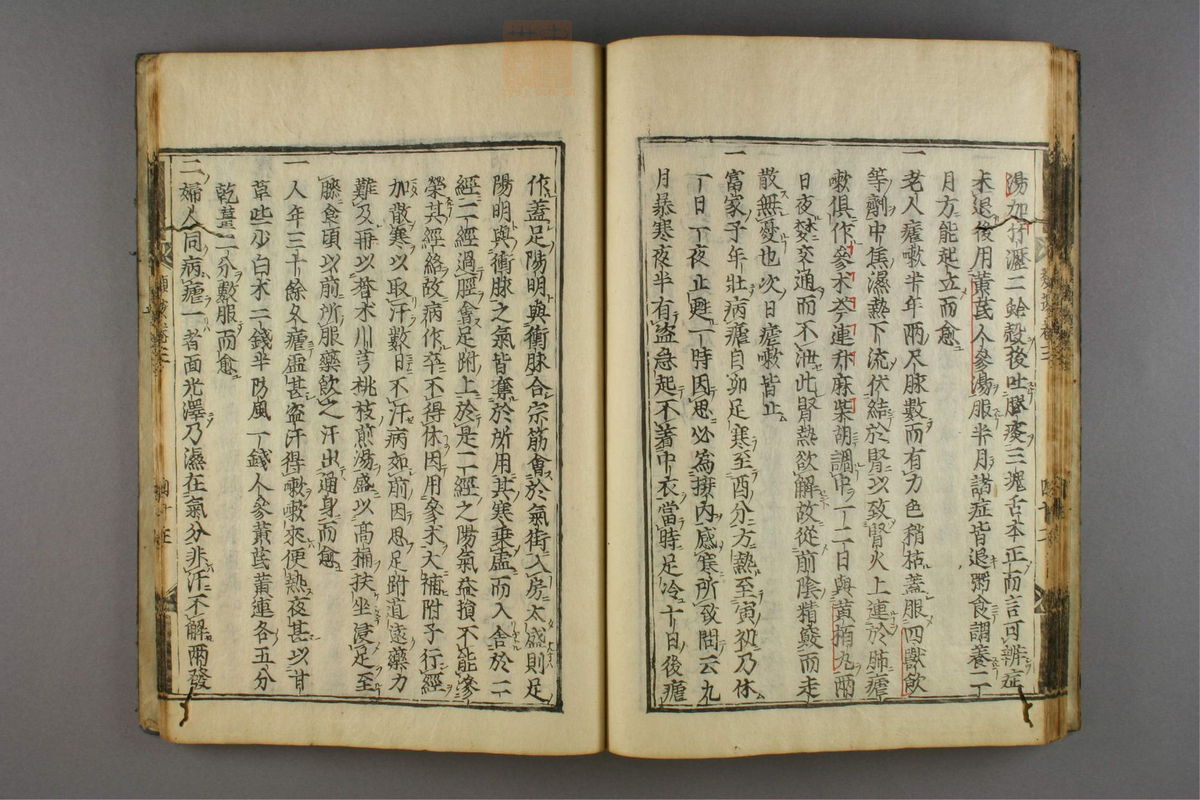 湯加竹瀝二蛤殼後吐膠痰三塊舌本正而言可辨症
未退後用黃芪人參湯服半月諸症皆退粥食調養二丁
月方能起立而愈
一老人瘧嗽半年兩尺脉數而有力色稍枯蓋服四獸飲
等劑中焦濕熱下流伏結於腎以致腎火上連於肺瘧
嗽俱作參术芩連升麻柴胡調中一二日與黃柏丸兩
日夜夢交通而不泄此腎熱欲解故從前陰精竅而走
散無憂也次日瘧嗽皆止
一富家子年壯病瘧自卯足寒至酉分方熱至寅初乃休
一日一夜止甦一時因思必爲接內感寒所致問云九
月暴寒夜半有盜急起不著中衣當時足冷十日後瘧
作蓋足陽明與衝脉合宗筋會於氣街入房太盛則足
陽明與衝脉之氣皆奪於所用其寒乘虛而入舍於二
經二經過脛會足跗上於是二經之陽氣益損不能滲
榮其經絡故病作卒不得休因用參术大補附子行經
加散寒以取汗數日不汗病如前因思足跗道遠藥力
難及再以蒼术川芎桃枝煎湯盛以高桶扶坐浸足至
膝食頃以前所服藥飲之汗出通身而愈
一人年三十餘久瘧虛甚盜汗得嗽嗽來便熱夜甚以甘
草些少白术二錢半防風一錢人參黃芪黃連各五分
乾薑二分敷服而愈
二婦人同病瘧一者面光澤乃濕在氣分非汗不解兩發